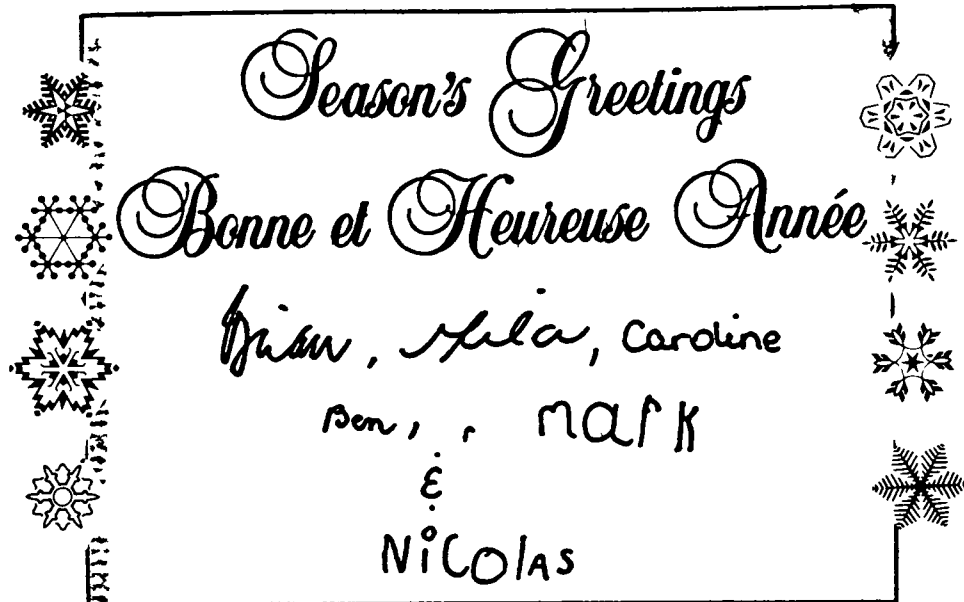 Season's Greetings
Bonne et Heureuse Année
Brian, Mila, Caroline
Ben, , Mark
&
Nicolas